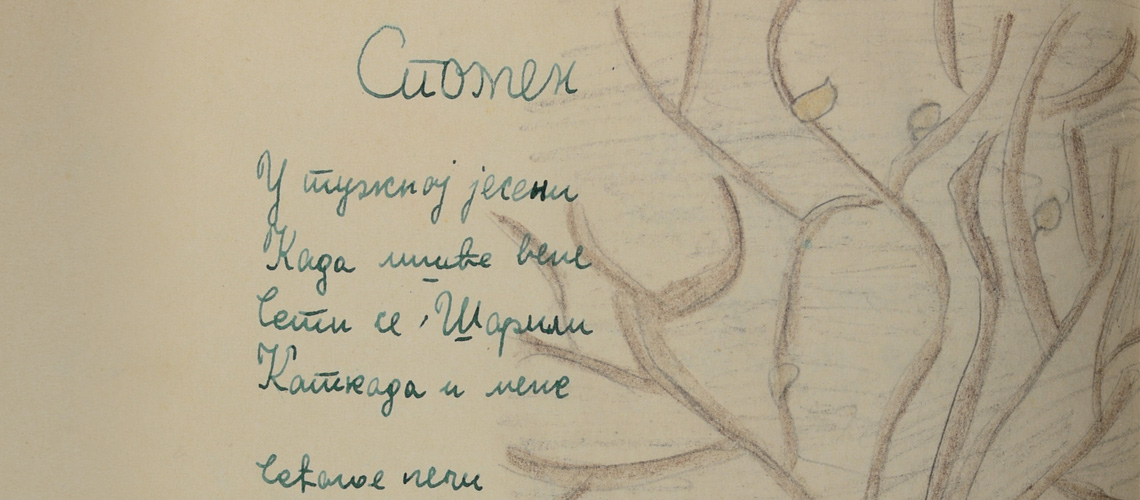 Спомен
У тужној јесени
Када лишће вене
Сети се, Шарили
Каткада и мене
Сећање